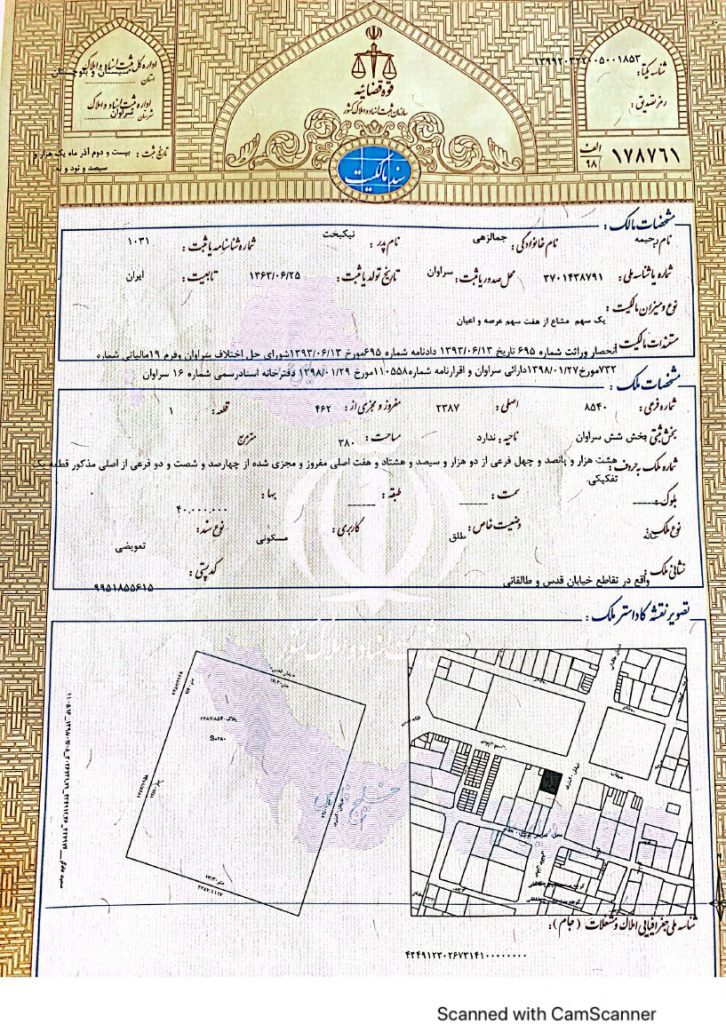 قوه قضائیه
سازمان ثبت اسناد و املاک کشور
اداره کل ثبت اسناد و املاک
استان سیستان و بلوچستان
اداره ثبت اسناد و املاک
شهرستان سراوان
تاریخ ثبت : بیست و دوم آذر ماه یک هزار و سیصد و نود و نه
شناسه یکتا: ۱۳۹۹۲۰۳۲۲۰۰۵۰۰۱۸۵۳
رمز تصدیق :
الف ۹۸ ۱۷۸۷۶۱
سند مالکیت
مشخصات مالک :
نام: رحیمه نام خانوادگی: جمالزهی نام پدر: نیکبخت شماره شناسنامه یا ثبت : ۱۰۳۱
شماره یا شناسه ملی: ۳۷۰۱۴۳۸۷۹۱ محل صدور یا ثبت: سراوان تاریخ تولد یا ثبت: ۱۳۶۳/۰۶/۲۵ تابعیت: ایران
نوع و میزان مالکیت :
یک سهم مشاع از هفت سهم عرصه و اعیان
مستندات مالکیت : انحصار وراثت شماره ۶۹۵ تاریخ ۱۳۹۳/۰۶/۱۳ دادنامه شماره ۶۹۵مورخ ۱۳۹۳/۰۶/۱۳شورای حل اختلاف سراوان وفرم ۱۹مالیاتی شماره
۷۳۲مورخ۱۳۹۸/۰۱/۲۷دارائی سراوان و اقرارنامه شماره۱۱۰۵۵۸مورخ ۱۳۹۸/۰۱/۲۹ دفترخانه اسنادرسمی شماره ۱۶ سراوان
مشخصات ملک :
شماره فرعی: ۸۵۴۰ اصلی: ۲۳۸۷ مفروز و مجزی از: ۴۶۲ قطعه: ۱
بخش ثبتی: بخش شش سراوان ناحیه: ندارد مساحت: ۳۸۰ مترمربع
شماره ملک به حروف: هشت هزار و پانصد و چهل فرعی از دو هزار و سیصد و هشتاد و هفت اصلی مفروز و مجزی شده از چهارصد و شصت و دو فرعی از اصلی مذکور قطعه یک
تفکیکی.
بلوک: ____ سمت: ____ طبقه: ____ بها: ۴۰,۰۰۰,۰۰۰
نوع ملک: خانه وضعیت خاص: طلق کاربری: مسکونی نوع سند: تعویضی
نشانی ملک: واقع در تقاطع خیابان قدس و طالقانی کدپستی: ۹۹۵۱۸۵۵۶۱۵
تصویر نقشه کاداستر ملک :
شناسه ملی جغرافیایی املاک و مستغلات ( جام ):
۴۲۴۹۱۲۳۰۲۶۷۳۱۴۱۰۰۰۰۰۰۰۰
Scanned with CamScanner